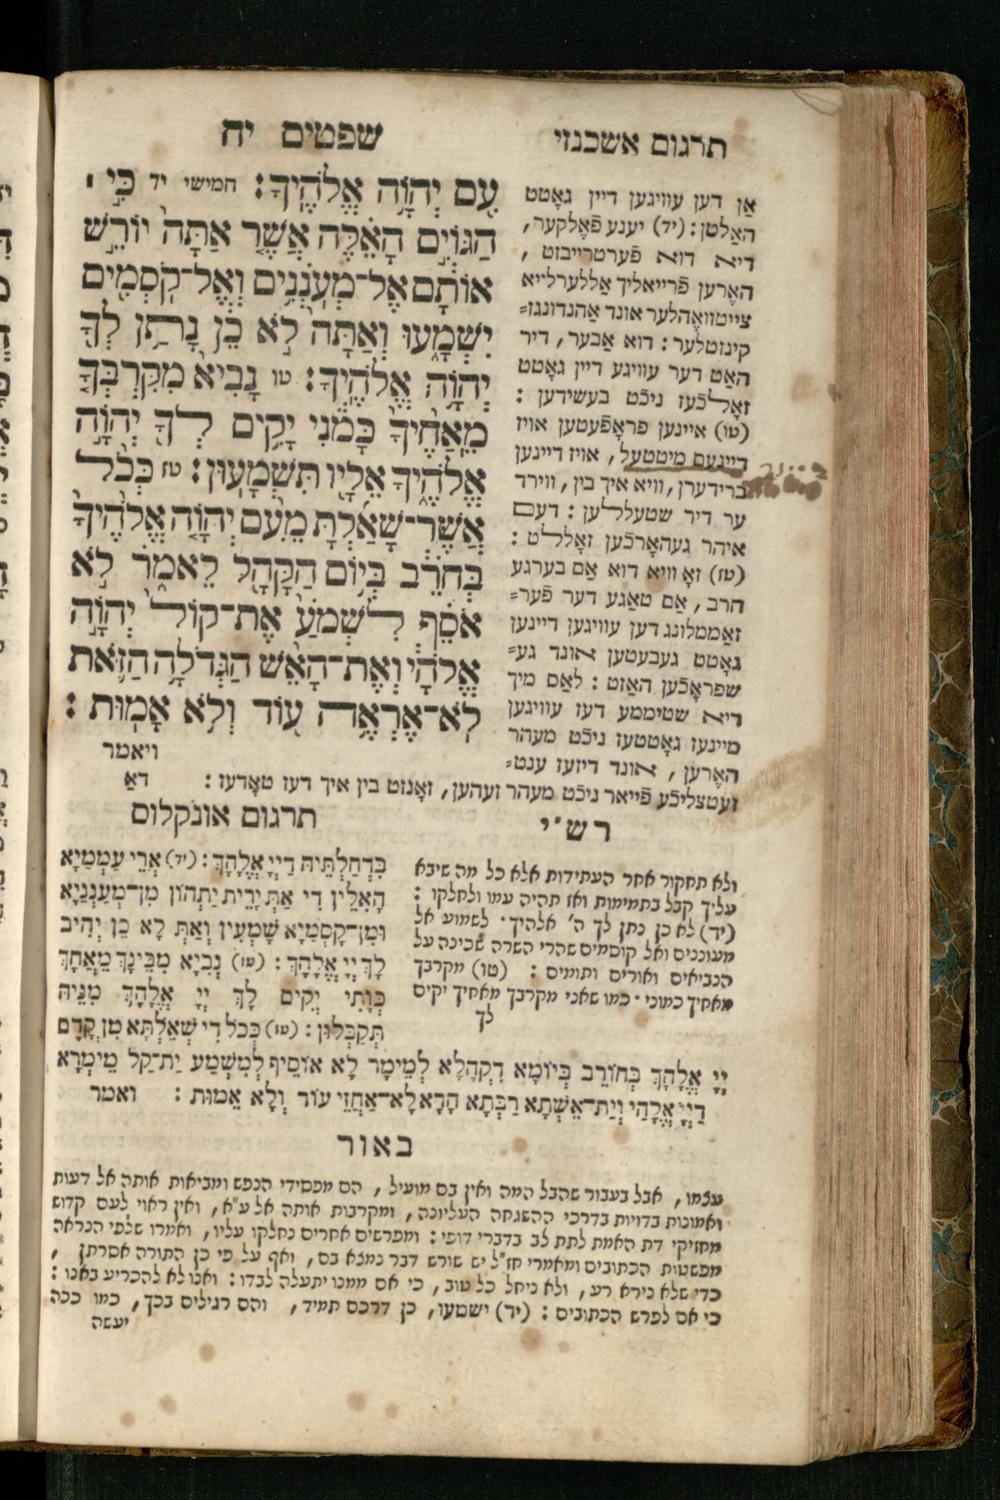 תרגום אשכנזי
שפטים יח
עִ֖ם יְהוָ֥ה אֱלֹהֶֽיךָ׃ חמישי יד כִּ֣י ׀
הַגּוֹיִ֣ם הָאֵ֗לֶּה אֲשֶׁ֤ר אַתָּה֙ יוֹרֵ֣שׁ
אוֹתָ֔ם אֶל־מְעֹֽנְנִ֥ים וְאֶל־קֹֽסְמִ֖ים
יִשְׁמָ֑עוּ וְאַתָּ֕ה לֹ֣א כֵ֔ן נָ֥תַן לְךָ֖
יְהוָ֥ה אֱלֹהֶֽיךָ׃ טו נָבִ֨יא מִקִּרְבְּךָ֤
מֵֽאַחֶ֙יךָ֙ כָּמֹ֔נִי יָקִ֥ים לְךָ֖ יְהוָ֣ה
אֱלֹהֶ֑יךָ אֵלָ֖יו תִּשְׁמָעֽוּן׃ טז כְּכֹ֨ל
אֲשֶׁר־שָׁאַ֜לְתָּ מֵעִ֨ם יְהוָ֤ה אֱלֹהֶ֙יךָ֙
בְּחֹרֵ֔ב בְּי֥וֹם הַקָּהָ֖ל לֵאמֹ֑ר לֹ֣א
אֹסֵ֗ף לִשְׁמֹ֙עַ֙ אֶת־קוֹל֙ יְהוָ֣ה
אֱלֹהָ֔י וְאֶת־הָאֵ֨שׁ הַגְּדֹלָ֥ה הַזֹּ֛את
לֹֽא־אֶרְאֶ֥ה ע֖וֹד וְלֹ֥א אָמֽוּת׃
ויאמר
אָן דען עוויגען דיין גאָטט
האַלטן׃ (יד) יענע פֿאָלקער,
דיא דוא פֿערטרייבזט,
האָרען פֿרייאליך אַללערלייא
צייטוואֶהלער אונד אַהנדונגז=
קינזטלער׃ דוא אַבער, דיר
האַט דער עוויגע דיין גאָטט
זאָלכֿעז ניכֿט בעשידען׃
(טו) איינען פראָפֿעטען אויז
דיינעם מיטטעל, אויז דיינען
ברידערן, וויא איך בין, ווירד
ער דיר שטעללען׃ דעם
איהר געהאָרכֿען זאָללט׃
(טז) זאָ וויא דוא אַם בערגע
חרב, אַם טאַגע דער פֿער=
זאַממלונג דען עוויגען דיינען
גאָטט געבעטען אונד גע=
שפראָכֿען האַזט׃ לאַס מיך
דיא שטיממע דעז עוויגען
מיינעז גאָטטעז ניכֿט מעהר
האָרען, אונד דיזעז ענט=
זעטצליכֿע פֿייאר ניכֿט מעהר זעהען, זאָנזט בין איך דעז טאָדעז׃ דאַ
תרגום אונקלוס
בִּדְחַלְתֵּיהּ דַיְיָ אֱלָהָךְ׃ (יד) אֲרֵי עַמְמַיָּא
הָאִלֵּין דִּי אַתְּ יָרֵית יַתְהוֹן מִן־מְעָנְנַיָּא
וּמִן־קָסְמַיָּא שָׁמְעִין וְאַתְּ לָא כֵן יְהִיב
לָךְ יְיָ אֱלָהָךְ׃ (טו) נְבִיָּא מִבֵּינָךְ מֵאֲחָךְ
כְּוָתִי יְקִים לָךְ יְיָ אֱלָהָךְ מִנֵּיהּ
תְּקַבְּלוּן׃ (טז) כְּכֹל דִּי שְׁאֵלְתָּא מִן קֳדָם
יְיָ אֱלָהָךְ בְּחוֹרֵב בְּיוֹמָא דִקְהָלָא לְמֵימָר לָא אוֹסֵיף לְמִשְׁמַע יַת־קַל מֵימְרָא
דַיְיָ אֱלָהַי וְיַת־אֵשָׁתָא רַבְּתָא הָדָא לָא־אֶחֱזֵי עוֹד וְלָא אֵמוּת׃ ואמר
רש״י
ולא תחקור אחר העתידות אלא כל מה שיבא
עליך קבל בתמימות ואז תהיה עמו ולחלקו׃
(יד) לא כן נתן לך ה׳ אלהיך· לשמוע אל
מעוננים ואל קוסמים שהרי השרה שכינה על
הנביאים ואורים ותומים׃ (טו) מקרבך
מאחיך כמוני· כמו שאני מקרבך מאחיך יקים
לך
באור
עצמו, אבל בעבור שהבל המה ואין בם מועיל, הם מפסידי הנפש ומביאות אותה אל דעות
ואמונות בדויות בדרכי ההשגחה העליונה, ומקרבות אותה אל ע״א, ואין ראוי לעם קדוש
מחזיקי דת האמת לתת לב בדברי דופי׃ ומפרשים אחרים נחלקו עליו, ואמרו שלפי הנראה
מפשטות הכתובים ומאמרי חז״ל יש שורש דבר נמצא בם, ואף על פי כן התורה אסרתן,
כדי שלא נירא רע, ולא ניחל כל טוב, כי אם ממנו יתעלה לבדו׃ ואנו לא להכריע באנו׃
כי אם לפרש הכתובים׃ (יד) ישמעו, כן דרכם תמיד, והם רגילים בכך, כמו ככה
יעשה